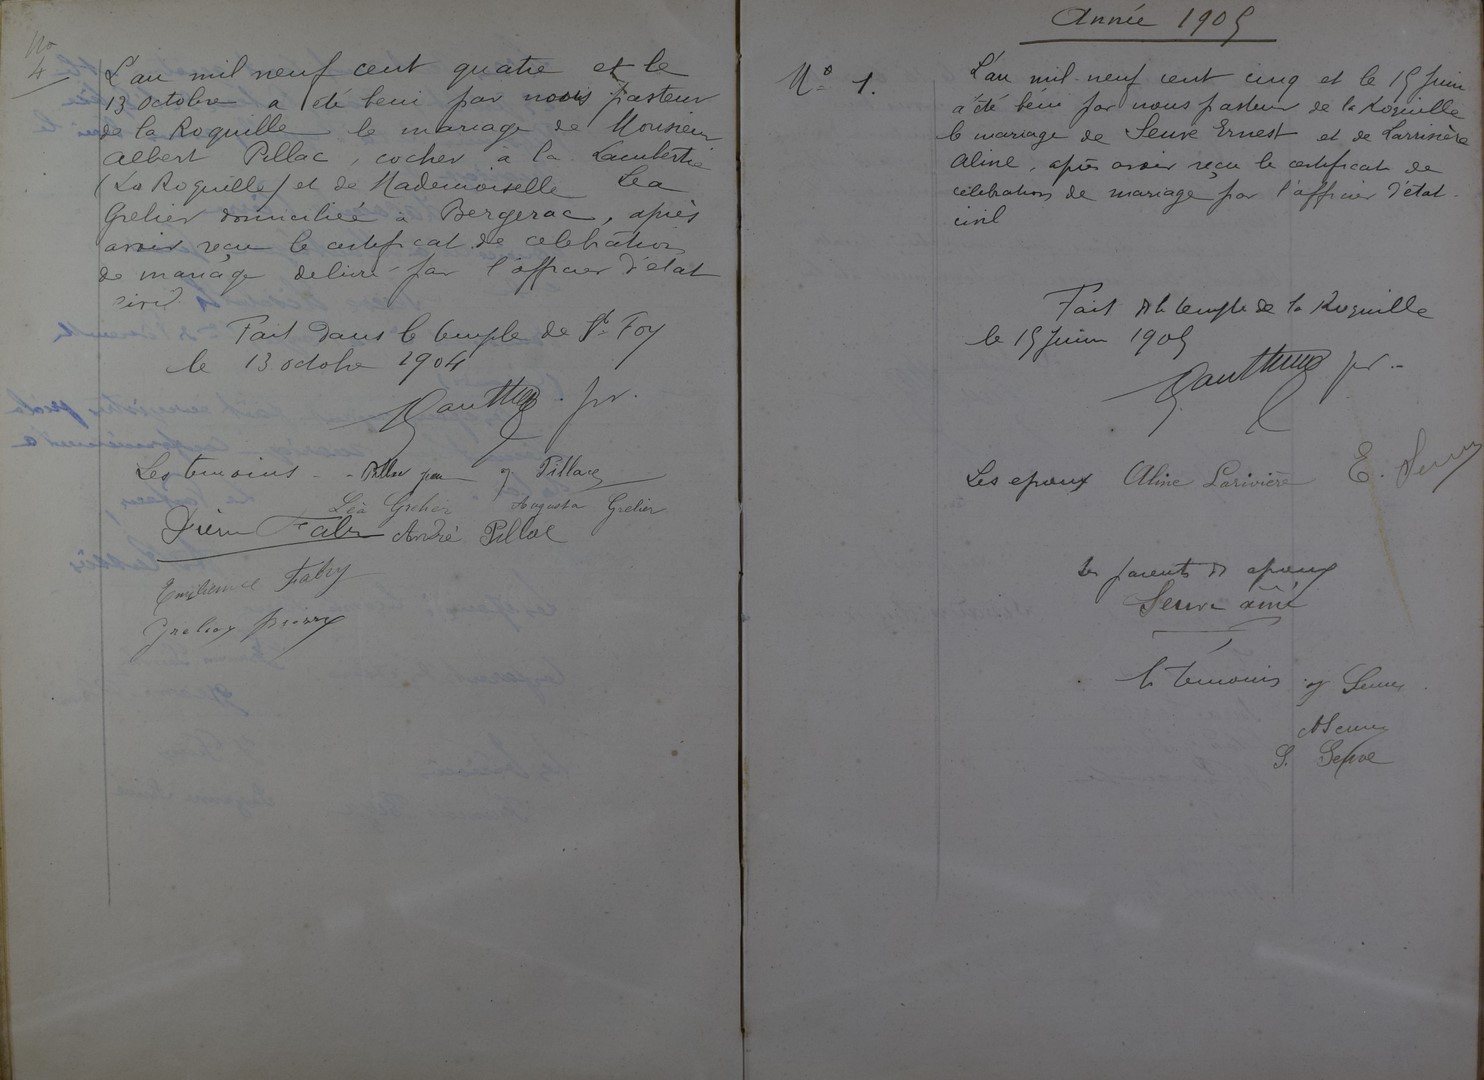 No
4
L'an mil neuf cent quatre et le
13 octobre a été beni par nous pasteur
de la Roquille le mariage de Monsieur
Albert Pillac, cocher à la Lambertie
(La Roquille) et de Mademoiselle Léa
Grelier domiciliée à Bergerac, après
avoir reçu le certificat de célébration
de mariage délivré par l'officier d'état
civil.
Fait dans le temple de Ste Foy
le 13 octobre 1904
pr.
Les temoins Pillac
Léa Grelier Augusta Grelier
André Pillac
Fabry
Année 1905
No 1.
L'an mil neuf cent cinq et le 15 Juin
a été béni par nous pasteur de la Roquille
le mariage de Seuve Ernest et de Larrivière
Aline, après avoir reçu le certificat de
célébration de mariage par l'officier d'état
civil
Fait au temple de la Roquille
le 15 Juin 1905
pr.
Les epoux Aline Larivière E. Seuve
les parents des epoux
Seuve ainé
les temoins Seuve
A Seuve
S. Seuve